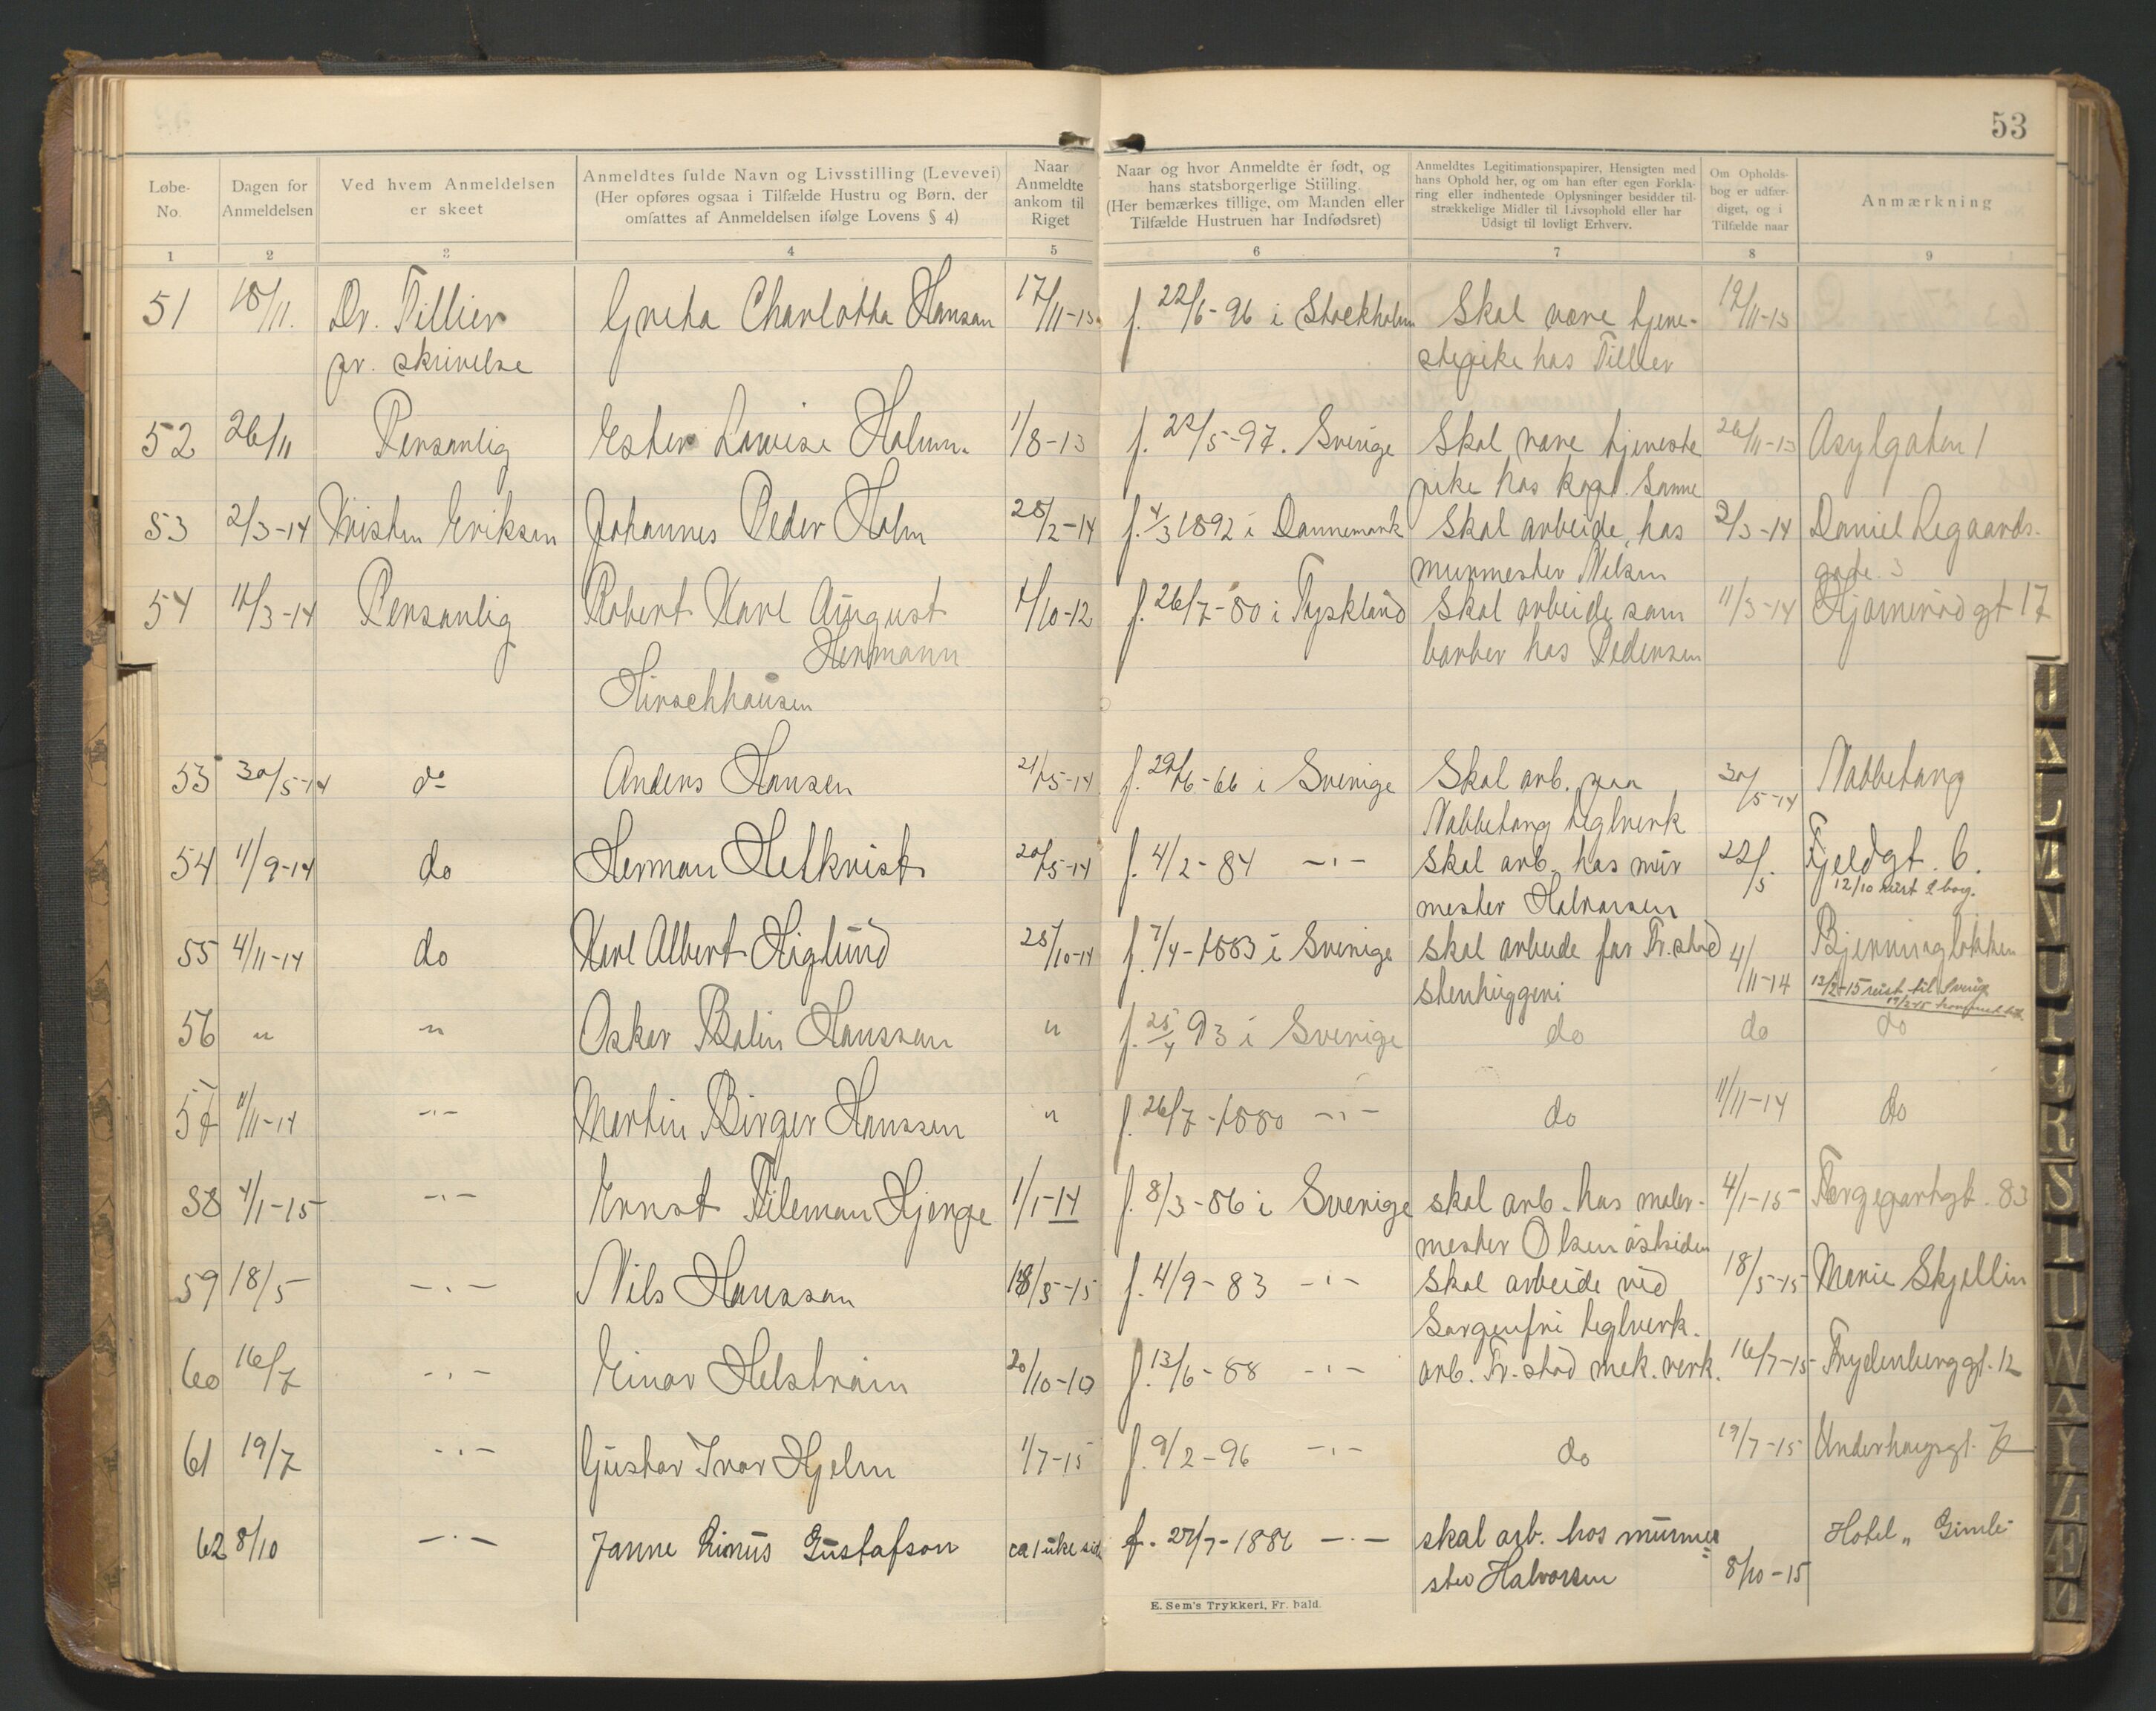 53
Løbe-
No.
Dagen for
Anmeldelsen
Ved hvem Anmeldelsen
er skeet
Anmeldtes fulde Navn og Livsstilling (Levevei)
(Her opføres ogsaa i Tilfælde Hustru og Børn, der
omfattes af Anmeldelsen ifølge Lovens § 4)
Naar
Anmeldte
ankom til
Riget
Naar og hvor Anmeldte er født, og
hans statsborgerlige Stilling.
(Her bemærkes tillige, om Manden eller
Tilfælde Hustruen har Indfødsret)
Anmeldtes Legitimationspapirer, Hensigten med
hans Ophold her, og om han efter egen Forkla-
ring eller indhentede Oplysninger besidder til-
strækkelige Midler til Livsophold eller har
Udsigt til lovligt Erhverv.
Om Opholds-
bog er udfær-
diget, og i
Tilfælde naar
Anmærkning
1 2 3 4 5 6 7 8 9
51 18/11. Dr. Tillier Greta Charlotta Hanson 17/11-13 f. 22/6-96 i Stockholm Skal være tjene- 19/11-13
pr. skrivelse stepike hos Tillier
52 26/11 Personlig Ester Lovise Holm. 1/8-13 f. 22/5-97. Sverige Skal være tjeneste 26/11-13 Asylgaten 1
pike hos kapt. Sanne
53 2/3-14 Kristen Eriksen Johannes Peder Holm 28/2-14 f. 4/3 1892 i Dannemark Skal arbeide hos 2/3-14 Daniel Legaards-
murmester Nilsen gade 3
54 11/3-14 Personlig Robert Karl August 1/10-12 f. 26/7-80 i Tyskland Skal arbeide som 11/3-14 gt 17
Hermann barber hos Pedersen
Hirschhausen
53 30/5-14 do Anders Hansen 21/5-14 f. 29/6-66 i Sverige Skal arb. paa 30/5-14 Nabbetang
Nabbetang teglverk
54 11/9-14 do Herman Helkvist 20/5-14 f. 4/2-84 -"- Skal arb. hos mur 22/5 Fjeldgt. 6.
mester Halvorsen 12/10 reist
55 4/11-14 do Karl Albert Höglund 25/10-14 f. 7/4-1883 i Sverige skal arbeide for Fr.stad 4/11-14 Bjørninglökken
stenhuggeri 12/2-15 reist til Sverige
56 " " Oskar Bolin Hansson " f. 25/4 93 i Sverige do do do
57 11/11-14 -"- Martin Birger Hanssen " f. 26/7-1880 -"- do 11/11-14 do
58 4/1-15 -"- Ernst Tileman Hjenge 1/1-14 f. 8/3-86 i Sverige skal arb. hos maler- 4/1-15 83
mester Olsen østsiden
59 18/5 -"- Nils Hansson 18/5-15 f. 4/9-83 -"- Skal arbeide ved 18/5-15 Marie Skjellin
Sorgenfri teglverk.
60 16/7 -"- Einar Helström 20/10-10 f. 13/6-88 -"- arb. Fr.-stad mek. verk. 16/7-15 Frydenberggt. 12
61 19/7 -"- Gustav Ivar Hjelm 1/7-15 f. 9/2-96 -"- do 19/7-15 Underhaugsgt. 7
62 8/10 -"- Janne Linus Gustafson ca 1 uke side f. 27/7-1886 -"- skal arb. hos murme= Hotel „Gimle"
ster Halvorsen 8/10-15
E. Sem's Trykkeri, Fr. hald.
J
A
L
M
N
O
P
Q
R
S
T
U
W
A
Y
Z
Æ
Ø